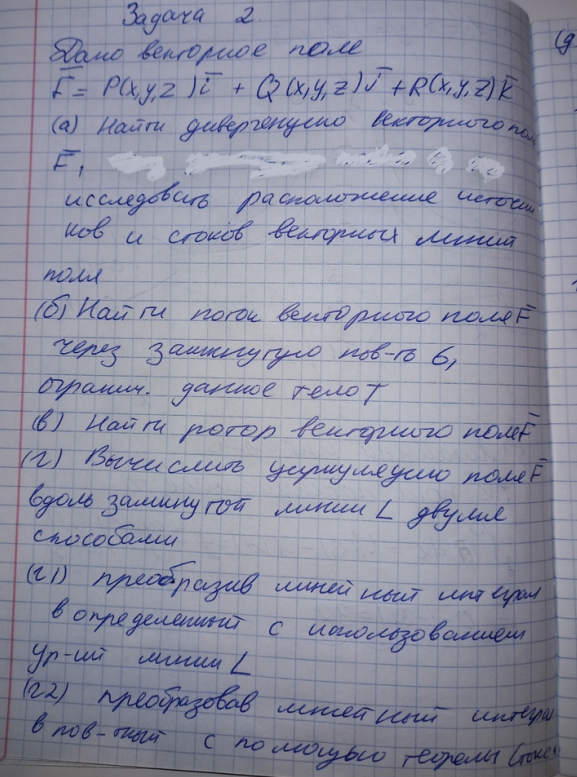 Задача 2
Дано векторное поле
F̄ = P(x,y,z) ī + Q(x,y,z) j̄ + R(x,y,z) k̄
(а) Найти дивергенцию векторного пол
F̄,
исследовать расположение источни
ков и стоков векторных линий
поля
(б) Найти поток векторного поля F̄
через замкнутую пов-ть б,
огранич. данное тело T
(в) Найти ротор векторного поля F̄
(г) Вычислить циркуляцию поля F̄
вдоль замкнутой линии L двумя
способами
(г1) преобразив линейный интеграл
в определенный с использованием
ур-ий линии L
(г2) преобразовав линейный интеграл
в пов-тный с помощью теоремы Стокс
(д